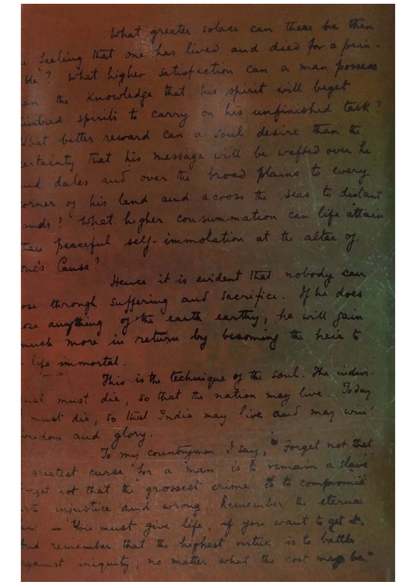 What greater solace can there be than
feeling that one has lived and died for a prin-
? What higher satisfaction can a man possess
the knowledge that his spirit will beget
spirits to carry on his unfinished task?
What better reward can a soul desire than the
certainty that his message will be wafted over hi
and dales and over the broad plains to every
corner of his land and across the seas to distant
? What higher consummation can life attain
peaceful self-immolation at the altar of
one's Cause?
Hence it is evident that nobody can
through suffering and sacrifice. If he does
anything of the earth earthy, he will gain
much more in return by becoming the heir to
life immortal.
This is the technique of the soul. The indivi-
must die, so that the nation may live. Today
must die, so that India may live and may win
and glory.
To my countrymen I say, "Forget not that
greatest curse for a man is to remain a slave
not that the grossest crime is to compromise
injustice and wrong. Remember the eternal
— You must give life, if you want to get it.
And remember that the highest virtue is to battle
against iniquity, no matter what the cost may be"